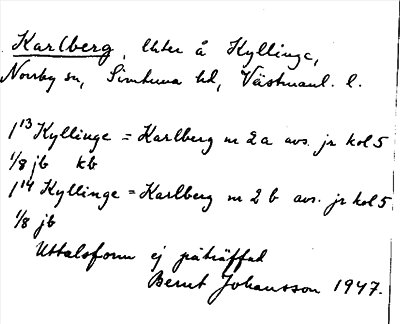 Karlberg, lhter å Kyllinge,
Norrby sn, Simtuna hd, Västmanl. l.
1¹³ Kyllinge = Karlberg nr 2a avs. jr kol 5
1/8 jb kb
1¹⁴ Kyllinge = Karlberg nr 2 b avs. jr kol 5
1/8 jb
Uttalsform ej påträffad
Bernt Johansson 1947.